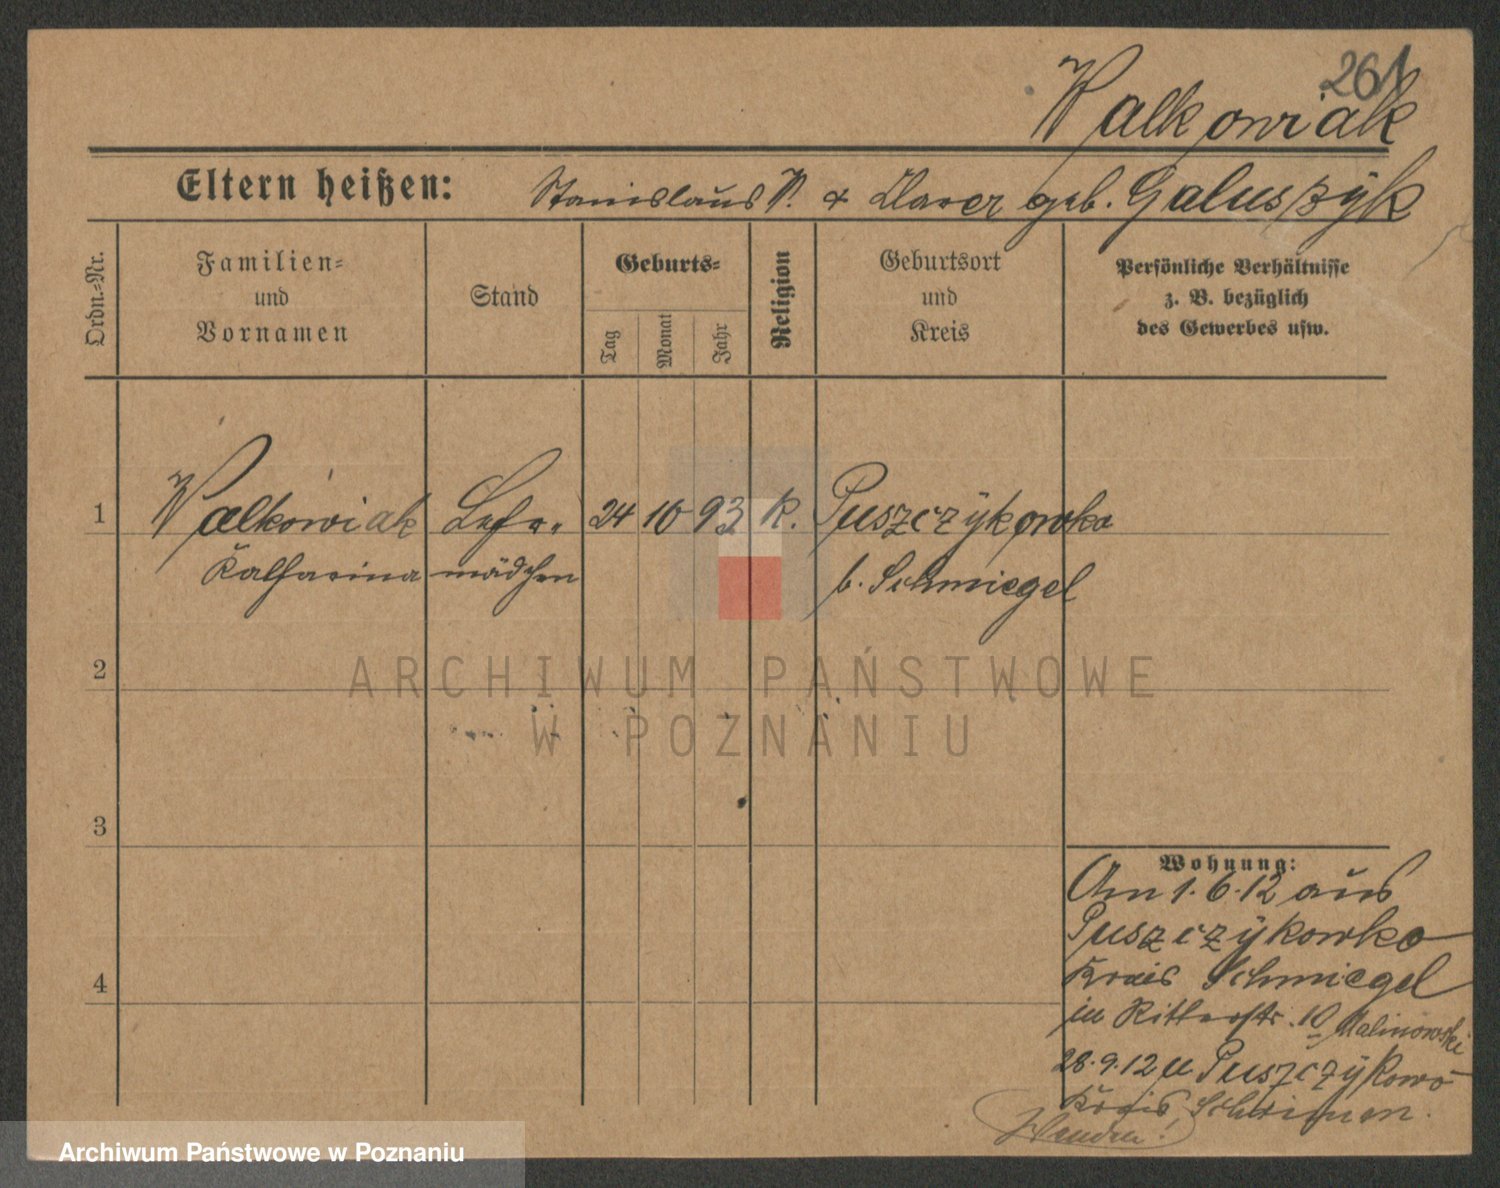 261
Walkowiak
Eltern heißen: Stanislaus W. & geb. Galuszÿk
Ordn.-Nr.
Familien-
und
Vornamen
Stand
Geburts-
Tag
Monat
Jahr
Religion
Geburtsort
und
Kreis
Persönliche Verhältnisse
z. B. bezüglich
des Gewerbes usw.
1 Walkowiak 24 10 93 K. Puszczÿkowko
Katharina mädchen b. Schmiegel
2
ARCHIWUM PAŃSTWOWE
W POZNANIU
3
4
Wohnung:
Am 1.6.12 aus
Puszczÿkowko
Kreis Schmiegel
in Ritterstr. 10 Malinowski
28.9.12 n Puszczÿkowo
Kreis Schrimm.
Archiwum Państwowe w Poznaniu